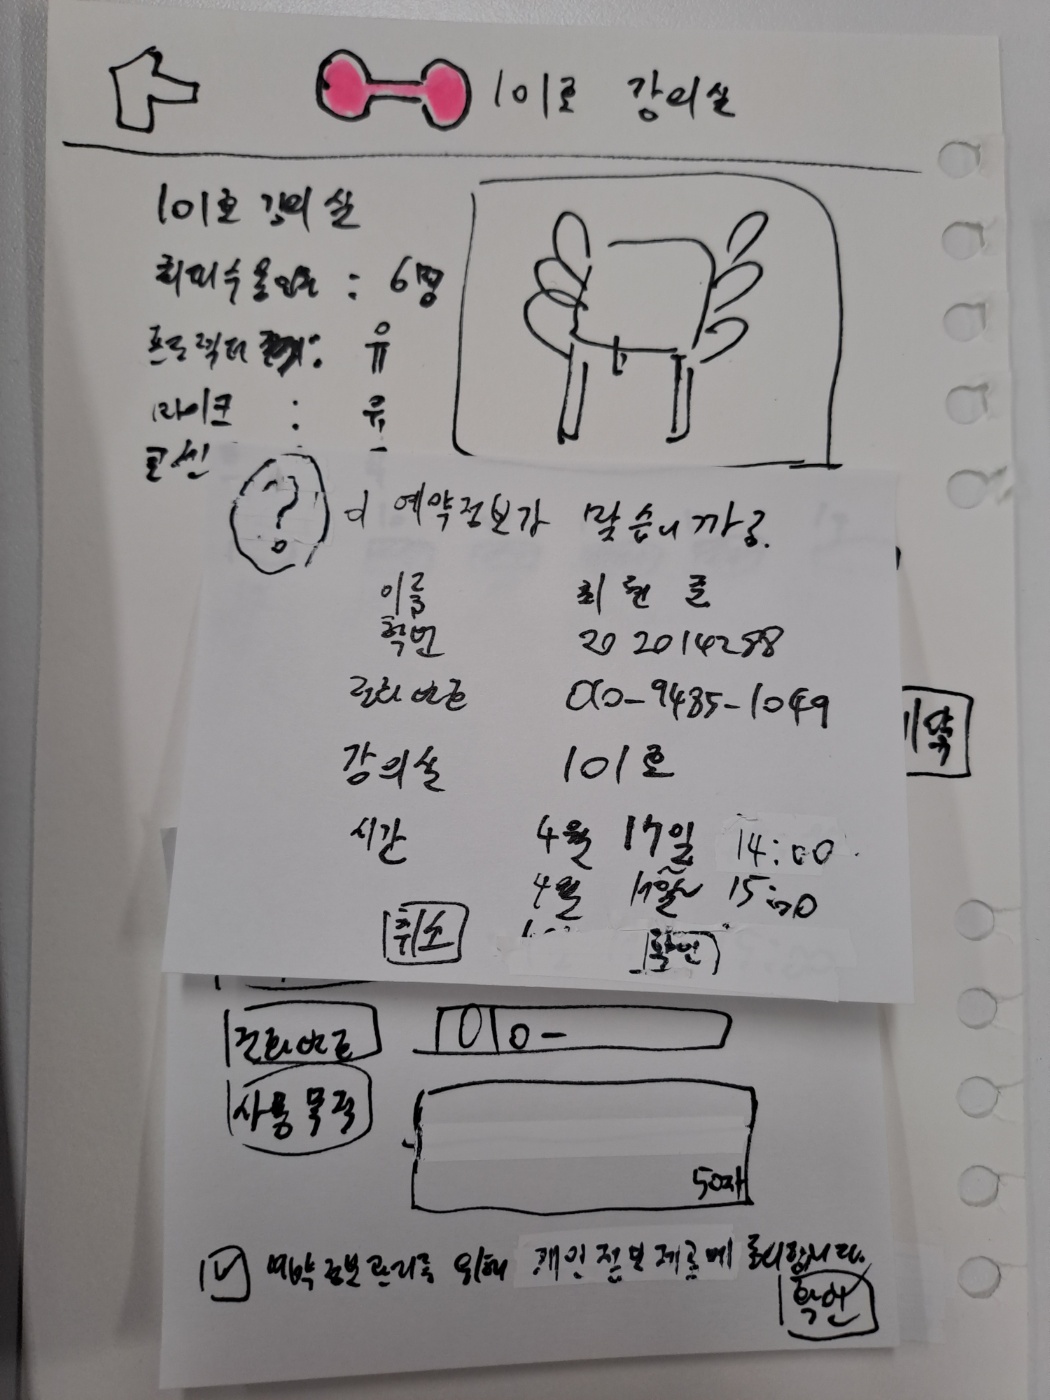 101호 강의실
101호 강의실
최대수용인원 : 6명
프로젝터 : 유
마이크 : 유
콘센
? 이 예약정보가 맞습니까?
이름 최원준
학번 202014288
전화번호 010-9485-1049
강의실 101호
시간 4월 17일 14:00
4월 17일 15:00
취소 확인
예약
전화번호 010-
사용목적
50자
예약정보관리를 위해 개인정보제공에 동의합니다.
확인